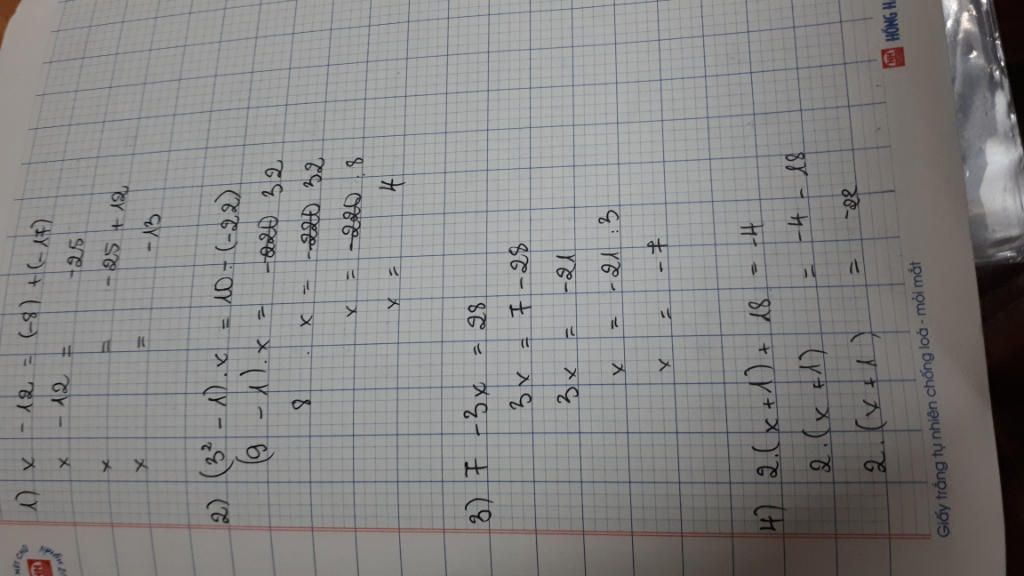 1) x - 12 = (-8) + (-17)
x - 12 = -25
x = -25 + 12
x = -13
2) (3² - 1) . x = 10 - (-22)
(9 - 1) . x = -220 32
8 . x = -220 32
x = -220 : 8
x = 4
3) 7 - 3x = 28
3x = 7 - 28
3x = -21
x = -21 : 3
x = -7
4) 2.(x+1) + 18 = -4
2.(x+1) = -4 - 18
2.(x+1) = -22
Giấy trắng tự nhiên chống loá - mỏi mắt
HH HỒNG H